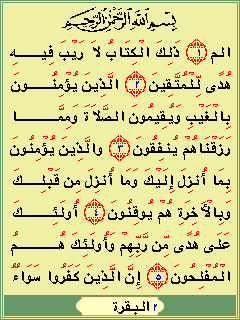 بِسْمِ اللَّهِ الرَّحْمَٰنِ الرَّحِيمِ
الم ١ ذَلِكَ الْكِتَابُ لَا رَيْبَ فِيهِ
هُدًى لِّلْمُتَّقِينَ ٢ الَّذِينَ يُؤْمِنُونَ
بِالْغَيْبِ وَيُقِيمُونَ الصَّلَاةَ وَمِمَّا
رَزَقْنَاهُمْ يُنفِقُونَ ٣ والَّذِينَ يُؤْمِنُونَ
بِمَا أُنزِلَ إِلَيْكَ وَمَا أُنزِلَ مِن قَبْلِكَ
وَبِالْآخِرَةِ هُمْ يُوقِنُونَ ٤ أُوْلَئِكَ
عَلَى هُدًى مِّن رَّبِّهِمْ وَأُوْلَئِكَ هُمُ
الْمُفْلِحُونَ ٥ إِنَّ الَّذِينَ كَفَرُوا سَوَاءٌ
٢ البقرة